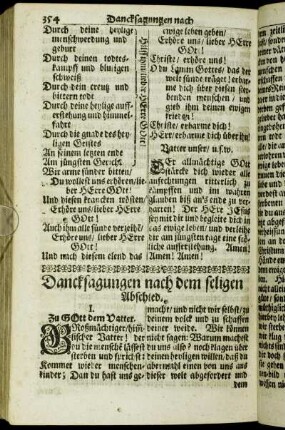 354 Dancksagungen nach
Durch deine heylige
menschwerdung und
geburt
Durch deinen todes-
kampff und blutigen
schweiß
Durch dein creutz und
bittern tode
Durch deine heylige auff-
erstehung und himmel-
fahrt
Durch die gnade des hey-
ligen Geistes
An seinem letzten ende
Am jüngsten Gericht
Wir arme sünder bitten/
Du wollest uns erhören/lie-
ber HErre GOtt!
Und diesen krancken trösten/
Erhör uns/lieber HErre
GOtt!
Auch ihm alle sünde verzeih/
Erhör uns/ lieber HErre
GOtt!
Und nach diesem elend das
ewige leben geben/
Erhöre uns/ lieber HErre
GOtt!
Christe/ erhöre uns!
O du Lamm Gottes/ das der
welt sünde trägst/ erbarme
dich über diesen ster-
benden menschen/ und
gieb ihm deinen ewigen
fried/ ꝛc.
Christe/ erbarme dich!
HErre/erbarme dich über ihn!
Vatter unser/ u.s.w.
DEr allmächtige GOtt
stärcke dich wieder alle
anfechtungen ritterlich zu
kämpffen und im wahren
glauben biß ans ende zu ver-
harren! Der HErr JEsus
sey mit dir und begleite dich in
das ewige leben/ und verleihe
dir am jüngsten tage eine frö-
liche aufferstehung. Amen!
Amen! Amen!
Dancksagungen nach dem seligen
Abschied.
I.
Zu GOtt dem Vatter.
GRoßmächtiger/himm-
lischer Vatter! der
du die menschen lässest
sterben und sprichst:
Kommet wieder menschen-
kinder; Dan du hast uns ge-
macht/ und nicht wir selbst/zu
deinem volck und zu schaffen
deiner weide. Wir können
der nicht sagen: Warum machest
du uns also? noch klagen über
deinen heyligen willen/ daß du
abermahl einen von uns aus
dieser welt abgefordert und
dem